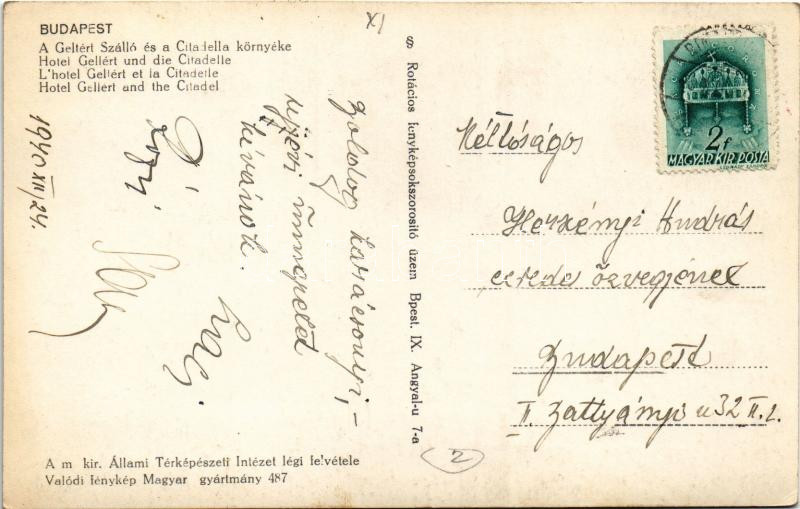 BUDAPEST
A Geltért Szálló és a Citadella környéke
Hotel Gellért und die Citadelle
L'hotel Gellért et la Citadelle
Hotel Gellért and the Citadel
XI
1940 XII/24.
Boldog karácsonyi, -
ujévi ünnepeket
kívánok.
§ Rotációs fényképsokszorosító üzem Bpest. IX. Angyal-u 7-a
2f
MAGYAR KIR. POSTA
Méltóságos
Herkényi András
ezredes özvegyének
Budapest
II. Zattyányi u 32 II. 2.
2
A m kir. Állami Térképészeti Intézet légi felvétele
Valódi fénykép Magyar gyártmány 487